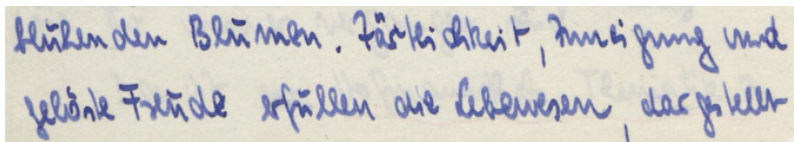 blühenden Blumen. Zärtlichkeit, Zuneigung und
gelöste Freude erfüllen die Lebewesen, dargestellt